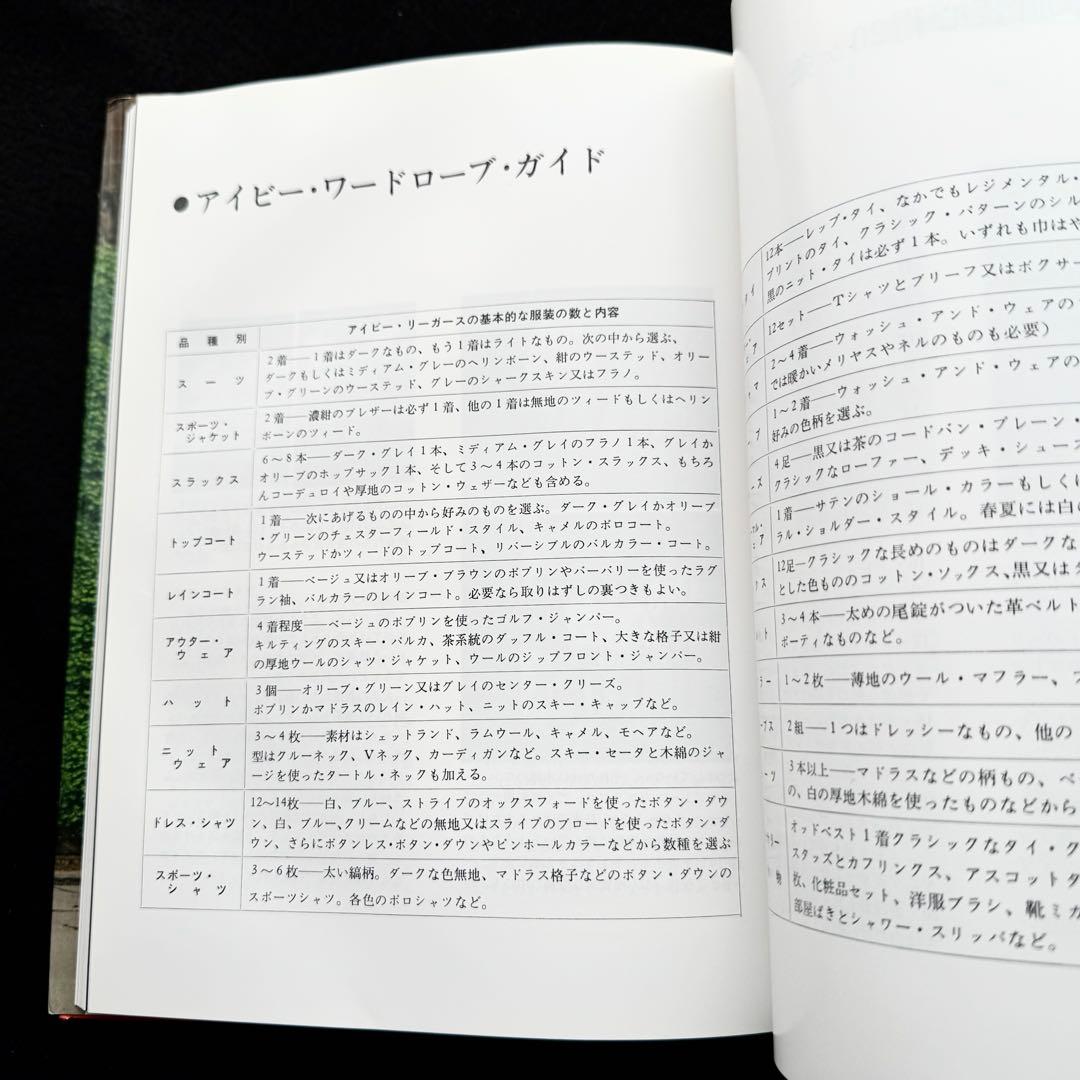 ●アイビー・ワードローブ・ガイド
品種別
アイビー・リーガースの基本的な服装の数と内容
スーツ
2着——1着はダークなもの、もう1着はライトなもの。次の中から選ぶ、
ダークもしくはミディアム・グレーのヘリンボーン、紺のウーステッド、オリー
ブ・グリーンのウーステッド、グレーのシャークスキン又はフラノ。
スポーツ・
ジャケット
2着——濃紺のブレザーは必ず1着、他の1着は無地のツィードもしくはヘリン
ボーンのツィード。
スラックス
6〜8本——ダーク・グレイ1本、ミディアム・グレイのフラノ1本、グレイか
オリーブのホップサック1本、そして3〜4本のコットン・スラックス、もちろ
んコーデュロイや厚地のコットン・ウェザーなども含める。
トップコート
1着——次にあげるものの中から好みのものを選ぶ。ダーク・グレイかオリーブ
・グリーンのチェスターフィールド・スタイル、キャメルのポロコート。
ウーステッドかツィードのトップコート、リバーシブルのバルカラー・コート。
レインコート
1着——ベージュ又はオリーブ・ブラウンのポプリンやバーバリーを使ったラグ
ラン袖、バルカラーのレインコート。必要なら取りはずしの裏つきもよい。
アウター・
ウェア
4着程度——ベージュのポプリンを使ったゴルフ・ジャンパー。
キルティングのスキー・パルカ、茶系統のダッフル・コート、大きな格子又は紺
の厚地ウールのシャツ・ジャケット、ウールのジップフロント・ジャンパー。
ハット
3個——オリーブ・グリーン又はグレイのセンター・クリーズ。
ポプリンかマドラスのレイン・ハット、ニットのスキー・キャップなど。
ニット
ウェア
3〜4枚——素材はシェットランド、ラムウール、キャメル、モヘアなど。
型はクルーネック、Vネック、カーディガンなど。スキー・セータと木綿のジャ
ージを使ったタートル・ネックも加える。
ドレス・シャツ
12〜14枚——白、ブルー、ストライプのオックスフォードを使ったボタン・ダウ
ン、白、ブルー、クリームなどの無地又はスライプのブロードを使ったボタン・ダ
ウン、さらにボタンレス・ボタン・ダウンやピンホールカラーなどから数種を選ぶ
スポーツ・
シャツ
3〜6枚——太い縞柄。ダークな色無地、マドラス格子などのボタン・ダウンの
スポーツシャツ。各色のポロシャツなど。
イ
12本——レップ・タイ、なかでもレジメンタル・
プリントのタイ、クラシック・パターンのシル
黒のニット・タイは必ず1本。いずれも巾はや
ア
12セット——Tシャツとブリーフ又はボクサー
マ
2〜4着——ウォッシュ・アンド・ウェアの
では暖かいメリヤスやネルのものも必要)
ブ
1〜2着——ウォッシュ・アンド・ウェアの
好みの色柄を選ぶ。
ズ
4足——黒又は茶のコードバン・プレーン・
クラシックなローファー、デッキ・シューズ
ル・
ア
1着——サテンのショール・カラーもしくは
ラル・ショルダー・スタイル。春夏には白の
クス
12足—クラシックな長めのものはダークな
とした色もののコットン・ソックス、黒又は
ト
3〜4本——太めの尾錠がついた革ベルト
ポーティなものなど。
ラー
1〜2枚——薄地のウール・マフラー、
ブス
2組——1つはドレッシーなもの、他の
ーツ
3本以上——マドラスなどの柄もの、
の、白の厚地木綿を使ったものなどから
リー
物
オッドベスト1着クラシックなタイ・ク
スタッズとカフリンクス、アスコットタ
枚、化粧品セット、洋服ブラシ、靴ミガ
部屋ばきとシャワー・スリッパなど。